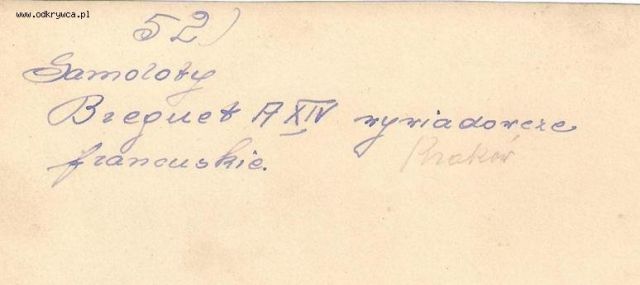 www.odkrywca.pl
52)
Samoloty
Breguet A XIV wywiadowcze
francuskie. Kraków